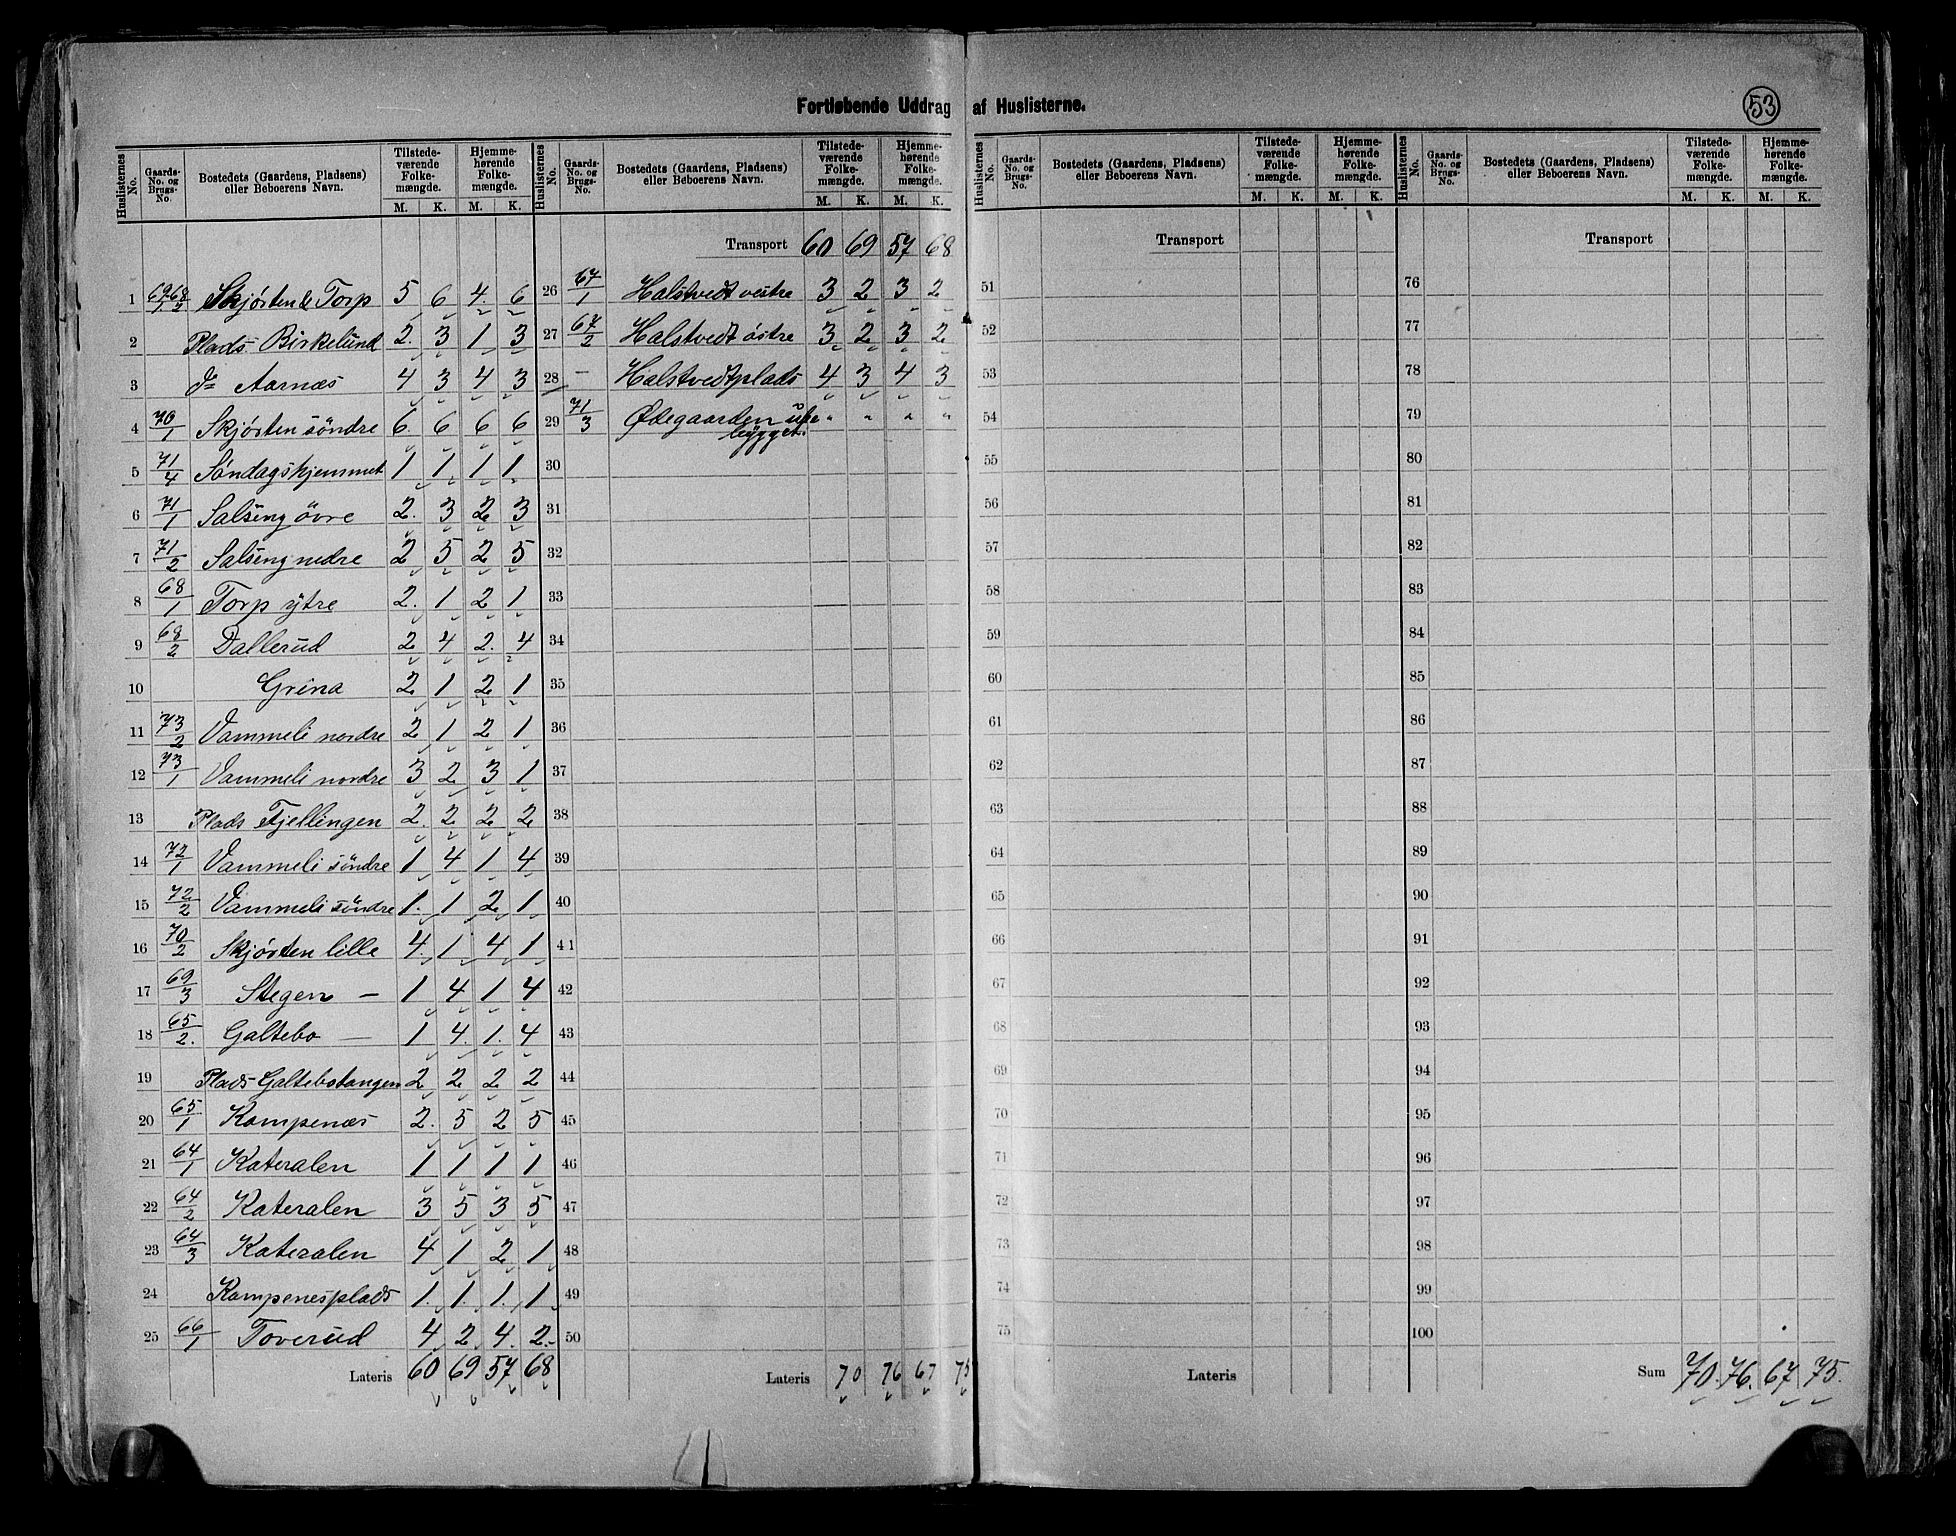 Fortløbende Uddrag af Huslisterne.
53
Huslisternes No. Gaards-No. og Brugs-No. Bostedets (Gaardens, Pladsens) eller Beboerens Navn. Tilstedeværende Folkemængde. Hjemmehørende Folkemængde.
M. K. M. K.
1 69/1 68/2 Skjørten & Torp 5 6 4 6
2 Plads Birkelund 2 3 1 3
3 Do Aarnæs 4 3 4 3
4 70/1 Skjørten söndre 6 6 6 6
5 71/4 Söndagshjemmet 1 1 1 1
6 71/1 Salseng övre 2 3 2 3
7 71/2 Salseng nedre 2 5 2 5
8 68/1 Torp ytre 2 1 2 1
9 68/2 Dallerud 2 4 2 4
10 Grina 2 1 2 1
11 73/2 Vammeli nordre 2 1 2 1
12 73/1 Vammeli nordre 3 2 3 1
13 Plads Fjellingen 2 2 2 2
14 72/1 Vammeli söndre 1 4 1 4
15 72/2 Vammeli söndre 1 1 2 1
16 70/2 Skjørten lille 4 1 4 1
17 69/3 Stegen — 1 4 1 4
18 65/2 Galtebo — 1 4 1 4
19 Plads Galtebotangen 2 2 2 2
20 65/1 Kampenæs 2 5 2 5
21 64/1 Kateralen 1 1 1 1
22 64/2 Kateralen 3 5 3 5
23 64/3 Kateralen 4 1 2 1
24 Kampenesplads 1 1 1 1
25 66/1 Toverud 4 2 4 2
Lateris 60 69 57 68
Huslisternes No. Gaards-No. og Brugs-No. Bostedets (Gaardens, Pladsens) eller Beboerens Navn. Tilstedeværende Folkemængde. Hjemmehørende Folkemængde.
M. K. M. K.
Transport 60 69 57 68
26 67/1 Halstvedt vestre 3 2 3 2
27 67/2 Halstvedt östre 3 2 3 2
28 — Halstvedtplads 4 3 4 3
29 71/3 Ødegaarden ube- " " " "
bygget.
30
31
32
33
34
35
36
37
38
39
40
41
42
43
44
45
46
47
48
49
50
Lateris 70 76 67 75
Huslisternes No. Gaards-No. og Brugs-No. Bostedets (Gaardens, Pladsens) eller Beboerens Navn. Tilstedeværende Folkemængde. Hjemmehørende Folkemængde.
M. K. M. K.
Transport
51
52
53
54
55
56
57
58
59
60
61
62
63
64
65
66
67
68
69
70
71
72
73
74
75
Lateris
Huslisternes No. Gaards-No. og Brugs-No. Bostedets (Gaardens, Pladsens) eller Beboerens Navn. Tilstedeværende Folkemængde. Hjemmehørende Folkemængde.
M. K. M. K.
Transport
76
77
78
79
80
81
82
83
84
85
86
87
88
89
90
91
92
93
94
95
96
97
98
99
100
Sum 70. 76. 67 75.